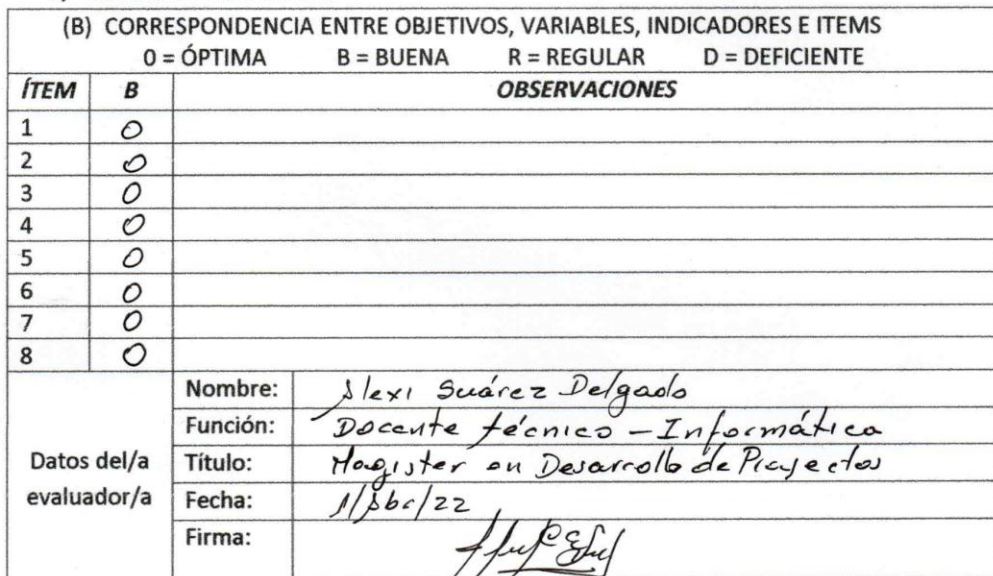 (B) CORRESPONDENCIA ENTRE OBJETIVOS, VARIABLES, INDICADORES E ITEMS
0 = ÓPTIMA B = BUENA R = REGULAR D = DEFICIENTE
ÍTEM B OBSERVACIONES
1 O
2 O
3 O
4 O
5 O
6 O
7 O
8 O
Datos del/a evaluador/a
Nombre: Alexi Suárez Delgado
Función: Docente técnico - Informática
Título: Magister en Desarrollo de Proyectos
Fecha:
Firma: